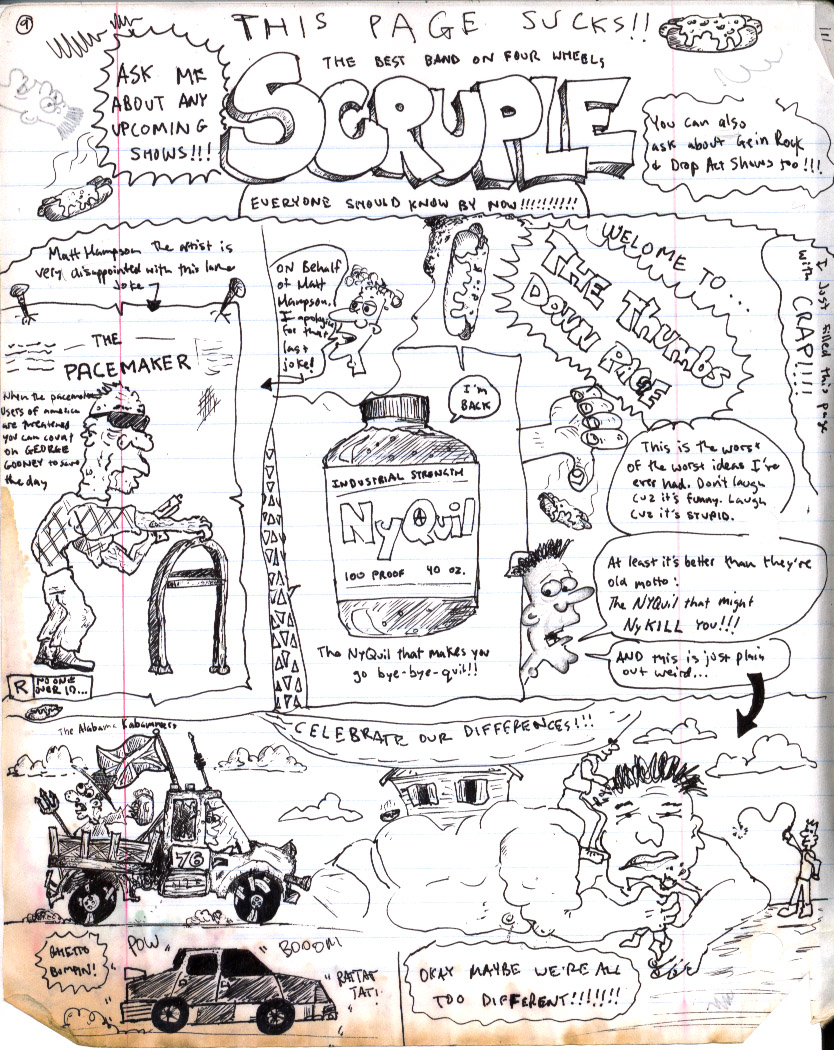 9
THIS PAGE SUCKS!!
THE BEST BAND ON FOUR WHEELS
SCRUPLE
EVERYONE SHOULD KNOW BY NOW!!!!!!!!!!
ASK ME
ABOUT ANY
UPCOMING
SHOWS!!!
You can also
ask about Gein Rock
& Drop Act Shows too!!!
Matt Hampson the artist is
very disappointed with this lame
joke
THE
PACEMAKER
When the pacemaker
users of america
are threatened
you can count
on GEORGE
GOONEY to save
the day
R NO ONE
OVER 10...
ON Behalf
of Matt
Hampson.
I apologize
for that
last
joke!
WELOME TO...
THE THUMBS
DOWN PAGE
I Just Filled this page
with CRAP!!!!
I'M
BACK
INDUSTRIAL STRENGTH
NyQuil
100 PROOF 40 OZ.
The NyQuil that makes you
go bye-bye-quil!!
This is the worst
of the worst ideas I've
ever had. Don't laugh
cuz it's funny. Laugh
cuz it's STUPID.
At least it's better than they're
old motto:
The NYQuil that might
NyKILL YOU!!!
AND this is just plain
out weird...
The Alabama Kabammers
76
CELEBRATE OUR DIFFERENCES!!!
GHETTO
BOMAN!
POW
BOOOM
RATTAT
TAT!
OKAY MAYBE WE'RE ALL
TOO DIFFERENT!!!!!!!